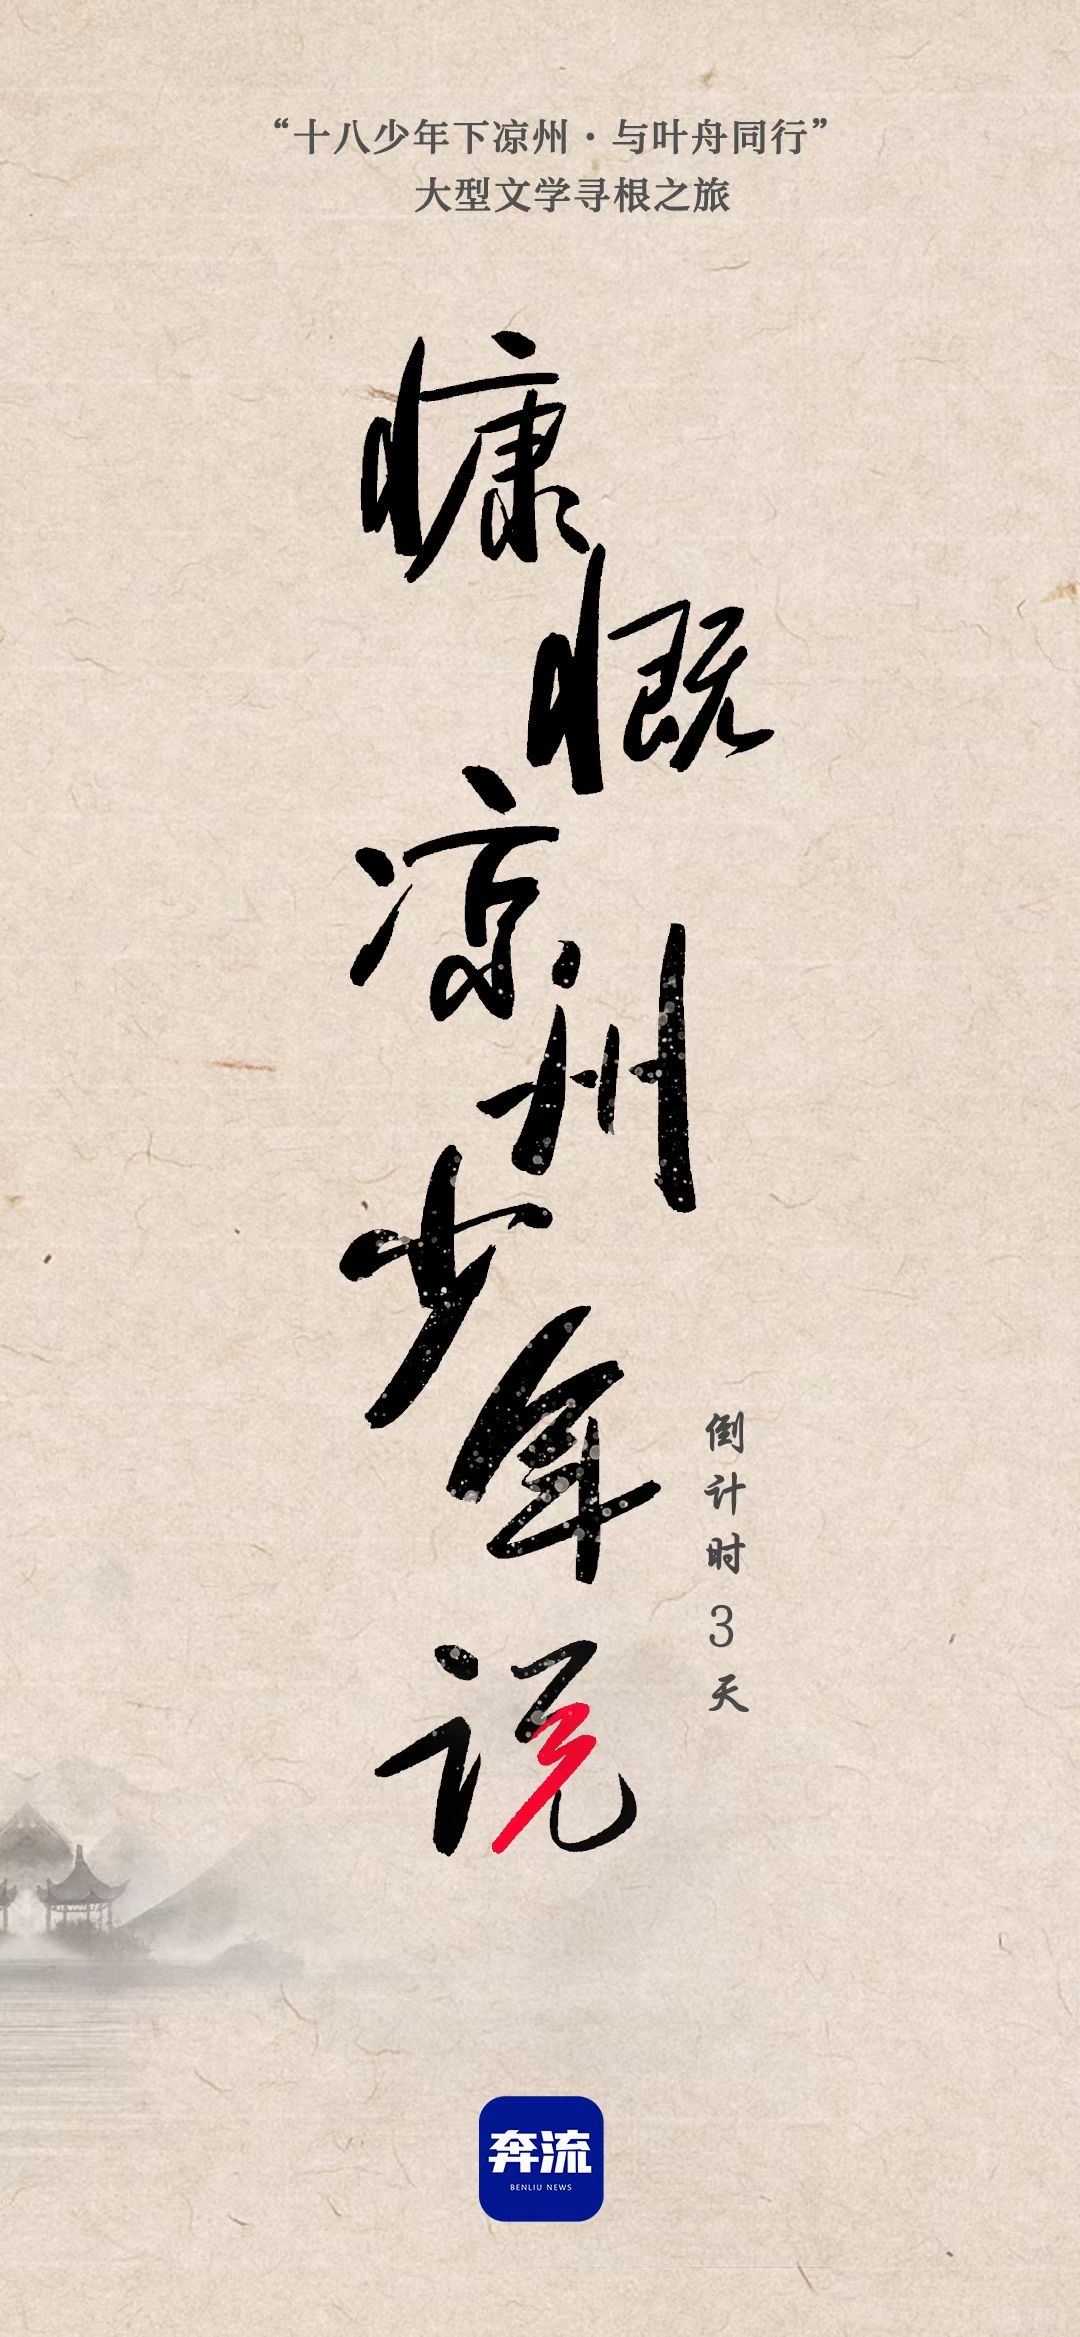 “十八少年下凉州·与叶舟同行”
大型文学寻根之旅
慷慨凉州少年说
倒计时3天
奔流
BENLIU NEWS